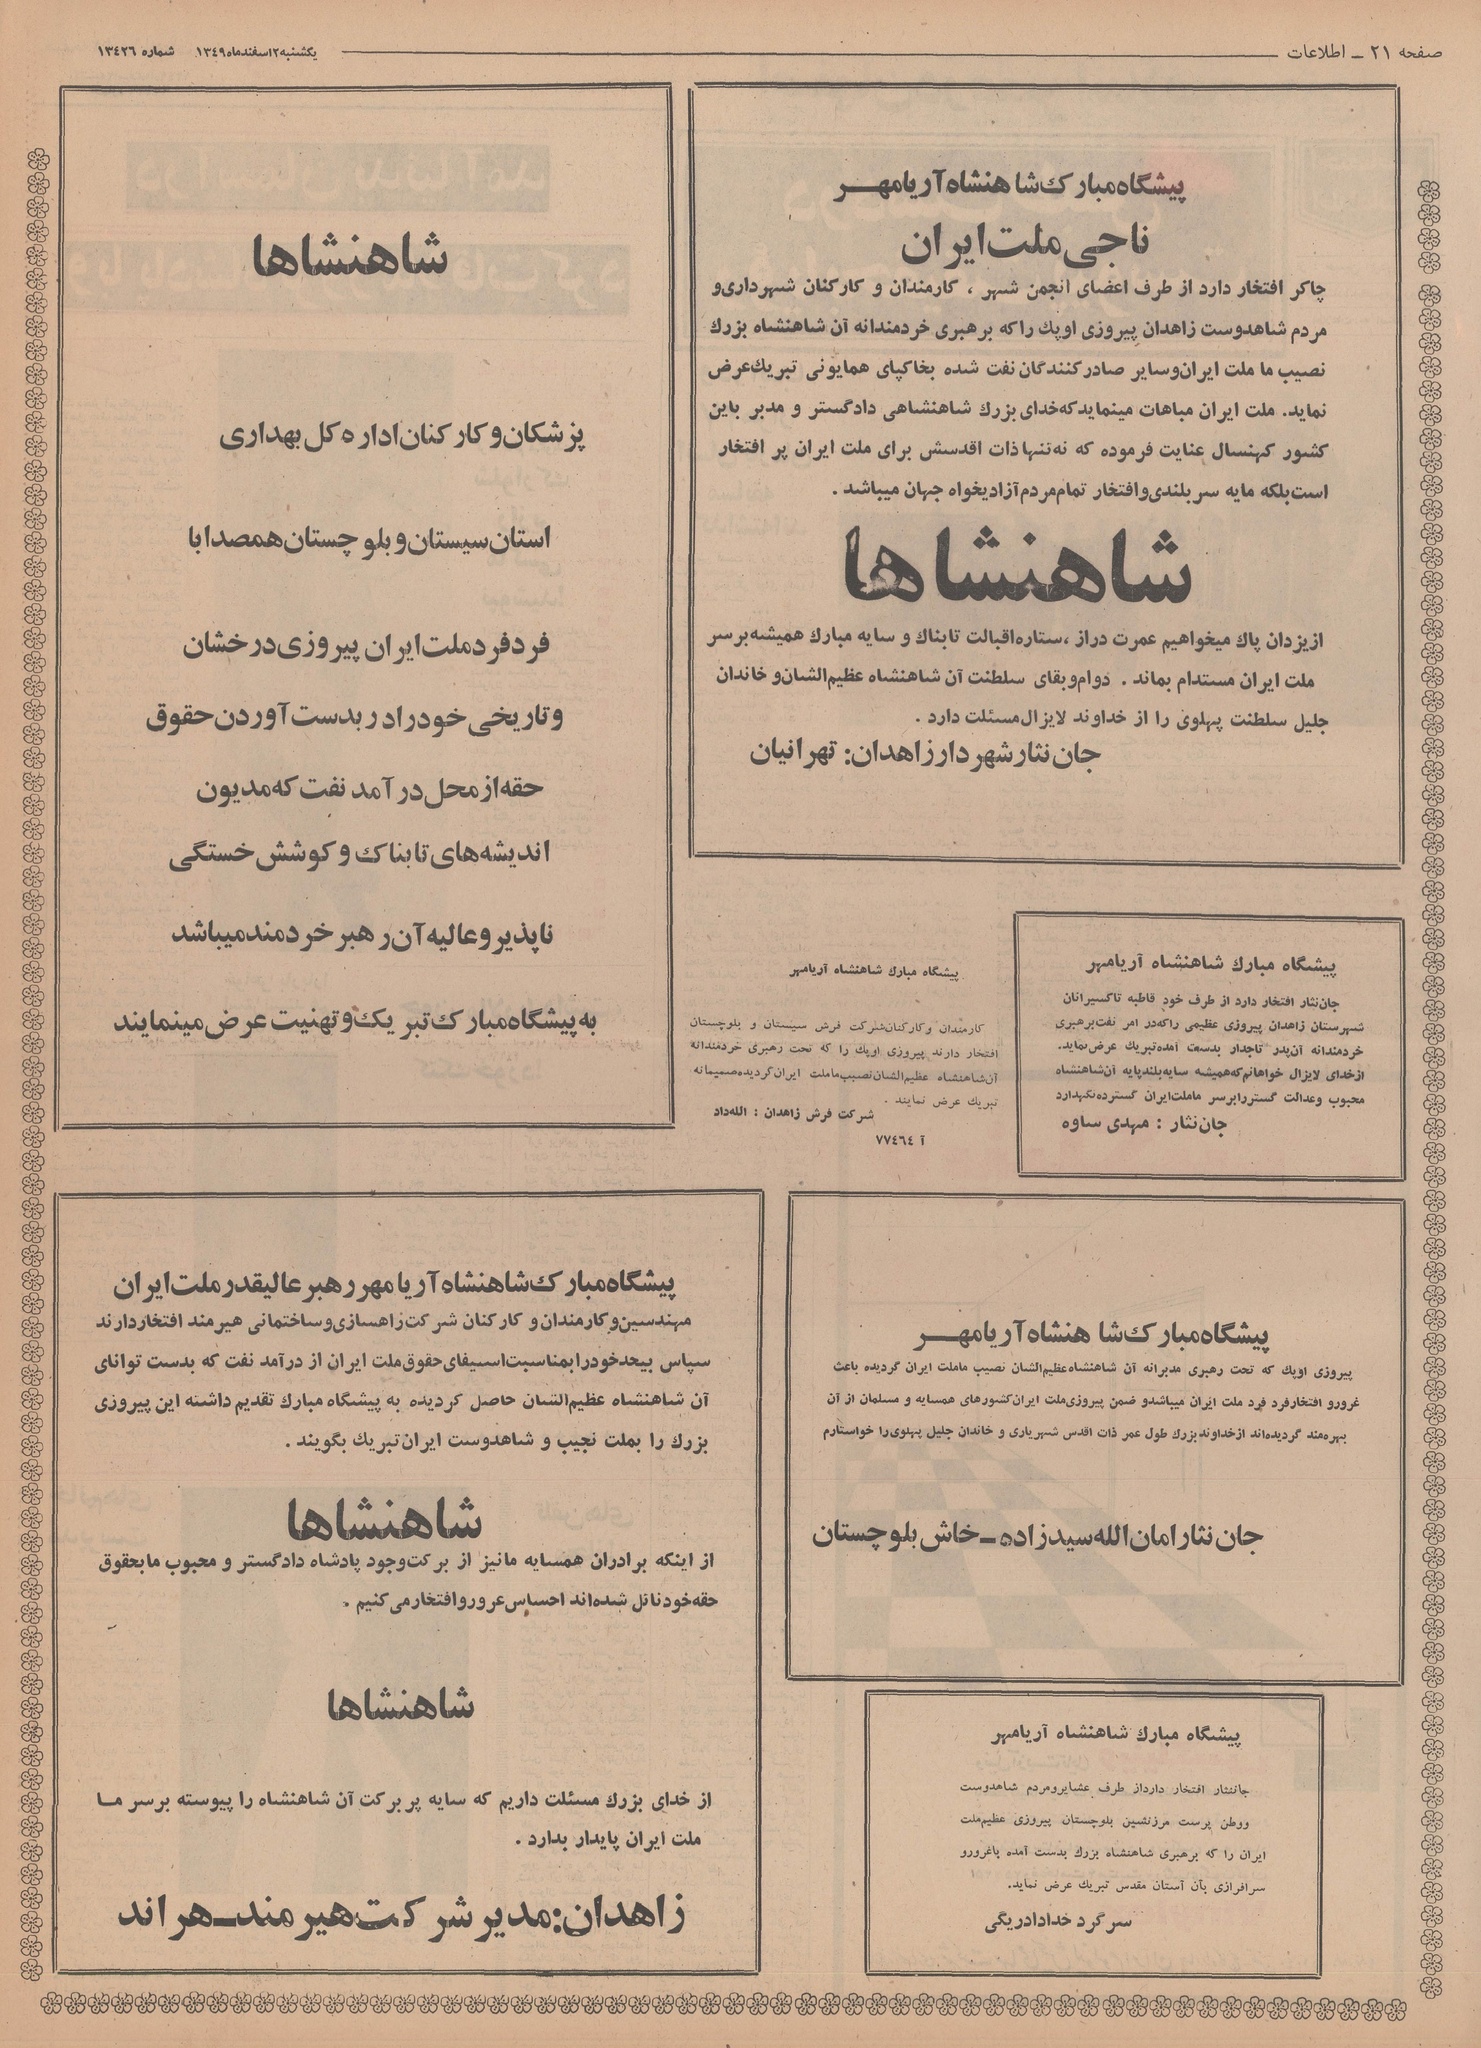 صفحه ۲۱ ـ اطلاعات
یکشنبه ۲ اسفندماه ۱۳۴۹ شماره ۱۳۴۲۶
پیشگاه مبارک شاهنشاه آریامهر
ناجی ملت ایران
چاکر افتخار دارد از طرف اعضای انجمن شهر ، کارمندان و کارکنان شهرداری و
مردم شاهدوست زاهدان پیروزی اوپک را که برهبری خردمندانه آن شاهنشاه بزرگ
نصیب ما ملت ایران و سایر صادر کنندگان نفت شده بخاکپای همایونی تبریک عرض
نماید. ملت ایران مباهات مینماید که خدای بزرگ شاهنشاهی دادگستر و مدبر باین
کشور کهنسال عنایت فرموده که نه تنها ذات اقدسش برای ملت ایران پر افتخار
است بلکه مایه سربلندی و افتخار تمام مردم آزادیخواه جهان میباشد .
شاهنشاها
از یزدان پاک میخواهیم عمرت دراز ، ستاره اقبالت تابناک و سایه مبارک همیشه بر سر
ملت ایران مستدام بماند . دوام و بقای سلطنت آن شاهنشاه عظیم الشان و خاندان
جلیل سلطنت پهلوی را از خداوند لایزال مسئلت دارد .
جان نثار شهردار زاهدان: تهرانیان
شاهنشاها
پزشکان و کارکنان اداره کل بهداری
استان سیستان و بلوچستان همصدا با
فرد فرد ملت ایران پیروزی درخشان
و تاریخی خود را در بدست آوردن حقوق
حقه از محل درآمد نفت که مدیون
اندیشه های تابناک و کوشش خستگی
ناپذیر و عالیه آن رهبر خردمند میباشد
به پیشگاه مبارک تبریک و تهنیت عرض مینمایند
پیشگاه مبارک شاهنشاه آریامهر
جان نثار افتخار دارد از طرف خود قاطبه تاکسیرانان
شهرستان زاهدان پیروزی عظیمی را که در امر نفت برهبری
خردمندانه آن پدر تاجدار بدست آمده تبریک عرض نماید.
از خدای لایزال خواهانم که همیشه سایه بلند پایه آن شاهنشاه
محبوب و عدالت گستر را بر سر ما ملت ایران گسترده نگهدارد
جان نثار : مهدی ساوه
پیشگاه مبارک شاهنشاه آریامهر
کارمندان و کارکنان شرکت فرش سیستان و بلوچستان
افتخار دارند پیروزی اوپک را که تحت رهبری خردمندانه
آن شاهنشاه عظیم الشان نصیب ما ملت ایران گردیده صمیمانه
تبریک عرض نمایند .
شرکت فرش زاهدان : الله داد
آ ۷۷۴۶۴
پیشگاه مبارک شاهنشاه آریامهر
پیروزی اوپک که تحت رهبری مدبرانه آن شاهنشاه عظیم الشان نصیب ما ملت ایران گردیده باعث
غرور و افتخار فرد فرد ملت ایران میباشد و ضمن پیروزی ملت ایران کشورهای همسایه و مسلمان از آن
بهره مند گردیده اند از خداوند بزرگ طول عمر ذات اقدس شهریاری و خاندان جلیل پهلوی را خواستارم
جان نثار امان الله سیدزاده ـ خاش بلوچستان
پیشگاه مبارک شاهنشاه آریامهر رهبر عالیقدر ملت ایران
مهندسین و کارمندان و کارکنان شرکت راهسازی و ساختمانی هیرمند افتخار دارند
سپاس بیحد خود را بمناسبت استیفای حقوق ملت ایران از درآمد نفت که بدست توانای
آن شاهنشاه عظیم الشان حاصل گردیده به پیشگاه مبارک تقدیم داشته این پیروزی
بزرگ را بملت نجیب و شاهدوست ایران تبریک بگویند .
شاهنشاها
از اینکه برادران همسایه ما نیز از برکت وجود پادشاه دادگستر و محبوب ما بحقوق
حقه خود نائل شده اند احساس غرور و افتخار می کنیم .
شاهنشاها
از خدای بزرگ مسئلت داریم که سایه پر برکت آن شاهنشاه را پیوسته بر سر ما
ملت ایران پایدار بدارد .
زاهدان: مدیر شرکت هیرمند ـ هراند
پیشگاه مبارک شاهنشاه آریامهر
جاننثار افتخار دارد از طرف عشایر و مردم شاهدوست
و وطن پرست مرزنشین بلوچستان پیروزی عظیم ملت
ایران را که برهبری شاهنشاه بزرگ بدست آمده با غرور و
سرافرازی بآن آستان مقدس تبریک عرض نماید.
سرگرد خداداد ریگی